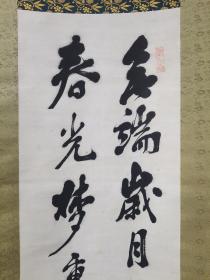 多端歳月
春光梦